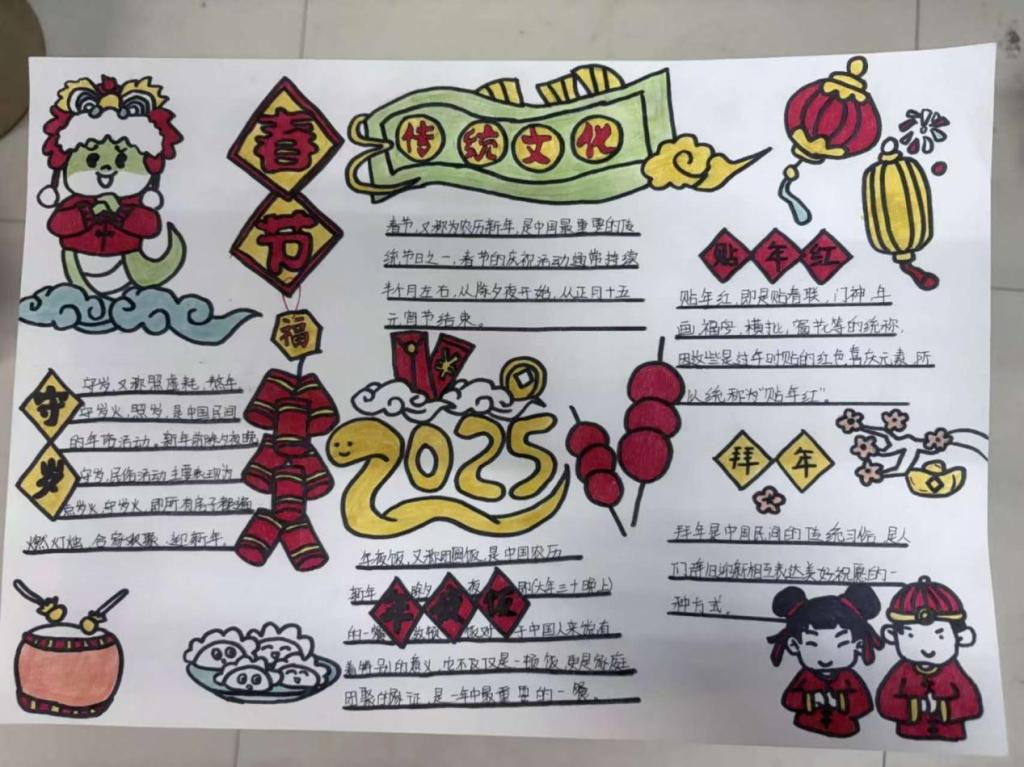 春节
福
传统文化
春节,又称为农历新年,是中国最重要的传
统节日之一,春节的庆祝活动通常持续
半个月左右,从除夕夜开始,从正月十五
元宵节结束。
贴年红
贴年红,即是贴春联、门神、年
画、福字、横批、窗花等的统称,
因这些是过年时贴的红色喜庆元素,所
以统称为"贴年红"。
守岁
守岁,又称照虚耗、熬年、
守岁火、照岁,是中国民间
的年俗活动。新年前除夕夜晚
守岁,民俗活动主要表现为
点岁火、守岁火,即所有房子都遍
燃灯烛,合家欢聚,迎新年。
2025
拜年
拜年是中国民间的传统习俗,是人
们辞旧迎新相互表达美好祝愿的一
种方式。
年夜饭
年夜饭,又称团圆饭,是中国农历
新年 除夕 夜 即(大年三十晚上)
的一餐 饭对于中国人来说有
着特别的意义,也不仅仅是一顿饭,更是家庭
团聚的象征,是一年中最重要的一餐。